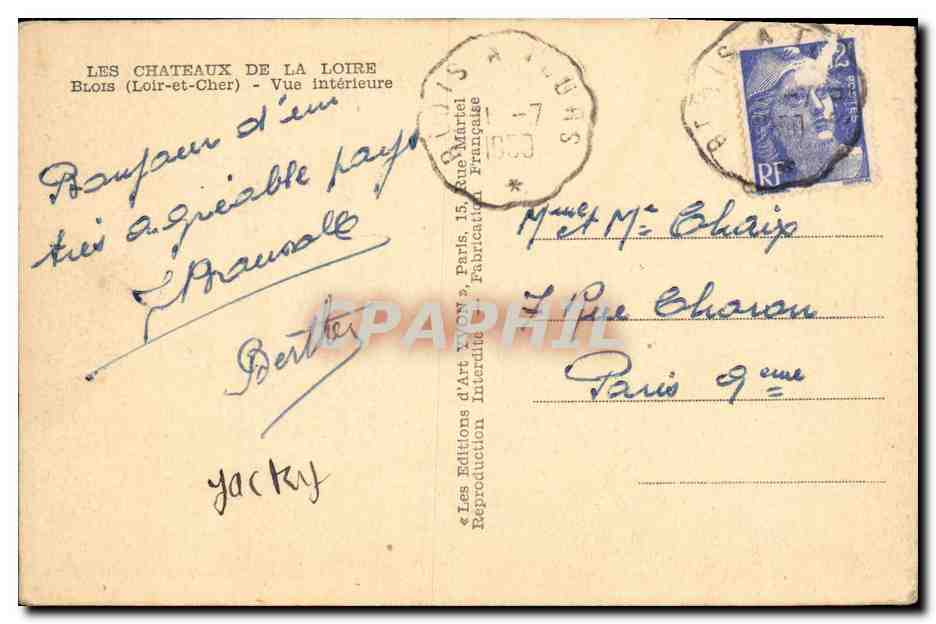 LES CHATEAUX DE LA LOIRE
BLOIS (Loir-et-Cher) - Vue intérieure
Bonjour d'un
très agréable pays
Berthe
Jacky
« Les Editions d'Art YVON », Paris, 15, Rue Martel
Reproduction Interdite - Fabrication Française
BLOIS A TOURS
-7
RF
Mme et Mr Chaix
7 Rue Choron
Paris 9eme
CPAPHIL